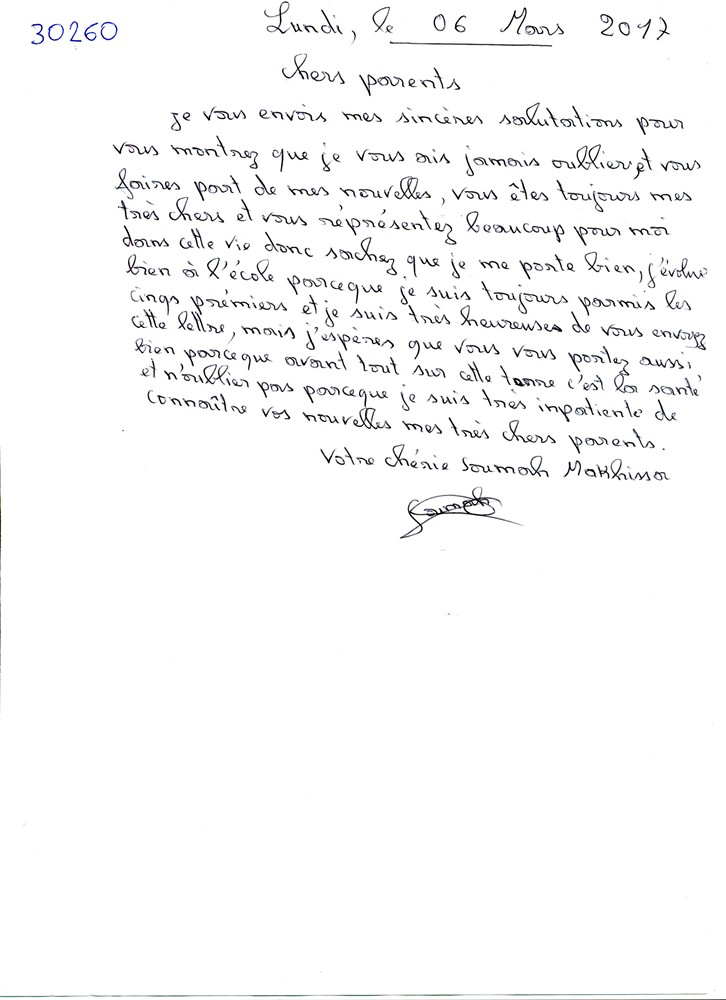 30260
Lundi, le 06 Mars 2017
chers parents
Je vous envois mes sincères salutations pour
vous montrez que je vous ais jamais oublier, et vous
faires part de mes nouvelles, vous êtes toujours mes
très chers et vous réprésentez beaucoup pour moi
dans cette vie donc sachez que je me porte bien, j'évolue
bien à l'école parceque je suis toujours parmis les
cinqs prémiers et je suis très heureuses de vous envoyez
cette lettre, mais j'espères que vous vous portez aussi,
bien parceque avant tout sur cette terre c'est la santé
et n'oublier pas parceque je suis très inpatiente de
connaître vos nouvelles mes très chers parents.
Votre chérie Soumah Makhissa
Soumah